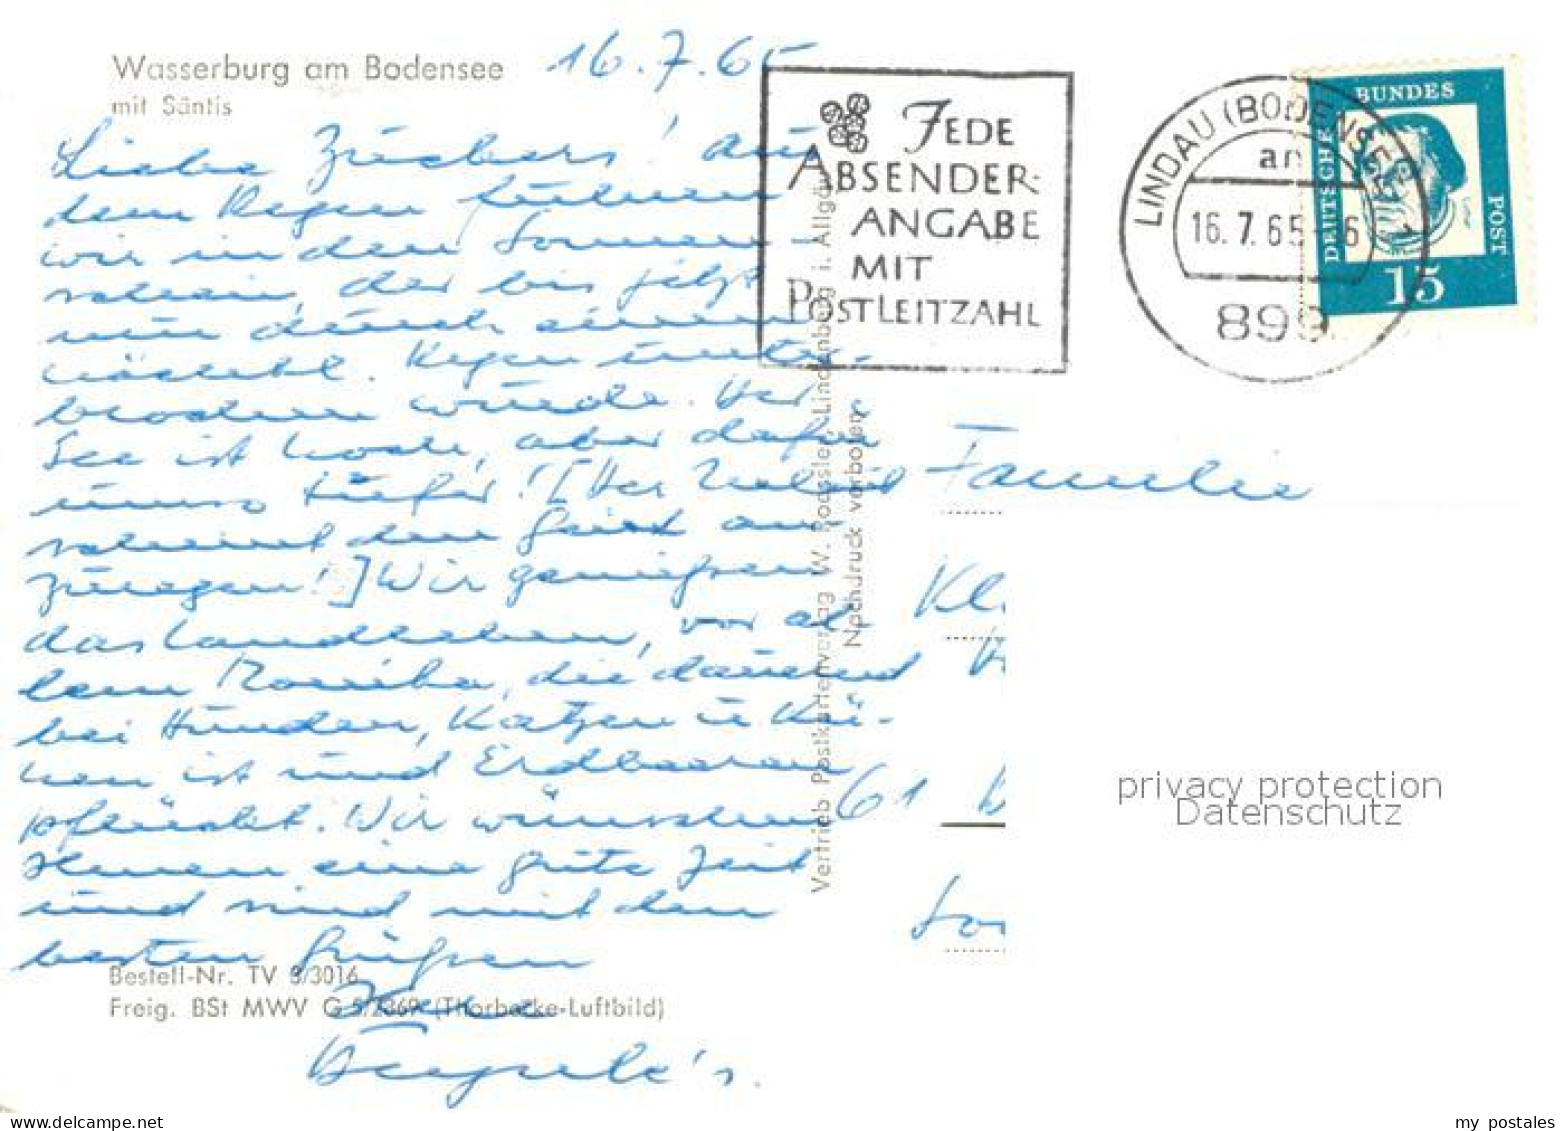 Wasserburg am Bodensee
mit Säntis
16.7.65
Liebe ! Aus
dem Regen fuhren
wir in den Sonnen-
schein, der bis jetzt
nur durch einen
nächtl. Regen unter-
brochen wurde. Der
See ist hoch, aber dafür
umso tiefer! [Der
scheint den Geist an-
zuregen!] Wir genießen
das Landleben, vor al-
lem Monika, die dauernd
bei Hunden, Katzen u Kü-
hen ist und Erdbeeren
pflückt. Wir wünschen
Ihnen eine gute Zeit
und sind mit den
besten Grüßen
Ihre
Bestell-Nr. TV 3/3016
Freig. BSt MWV G 5/2369 (Thorbecke-Luftbild)
Vertrieb Postkartenverlag W. Roessler, Lindenberg i. Allgäu
Nachdruck verboten
JEDE
ABSENDER-
ANGABE
MIT
POSTLEITZAHL
LINDAU (BODENSEE) 1
an
16.7.65-16
899
DEUTSCHE BUNDES POST
15
Familie
Kl
61
privacy protection
Datenschutz
my postales